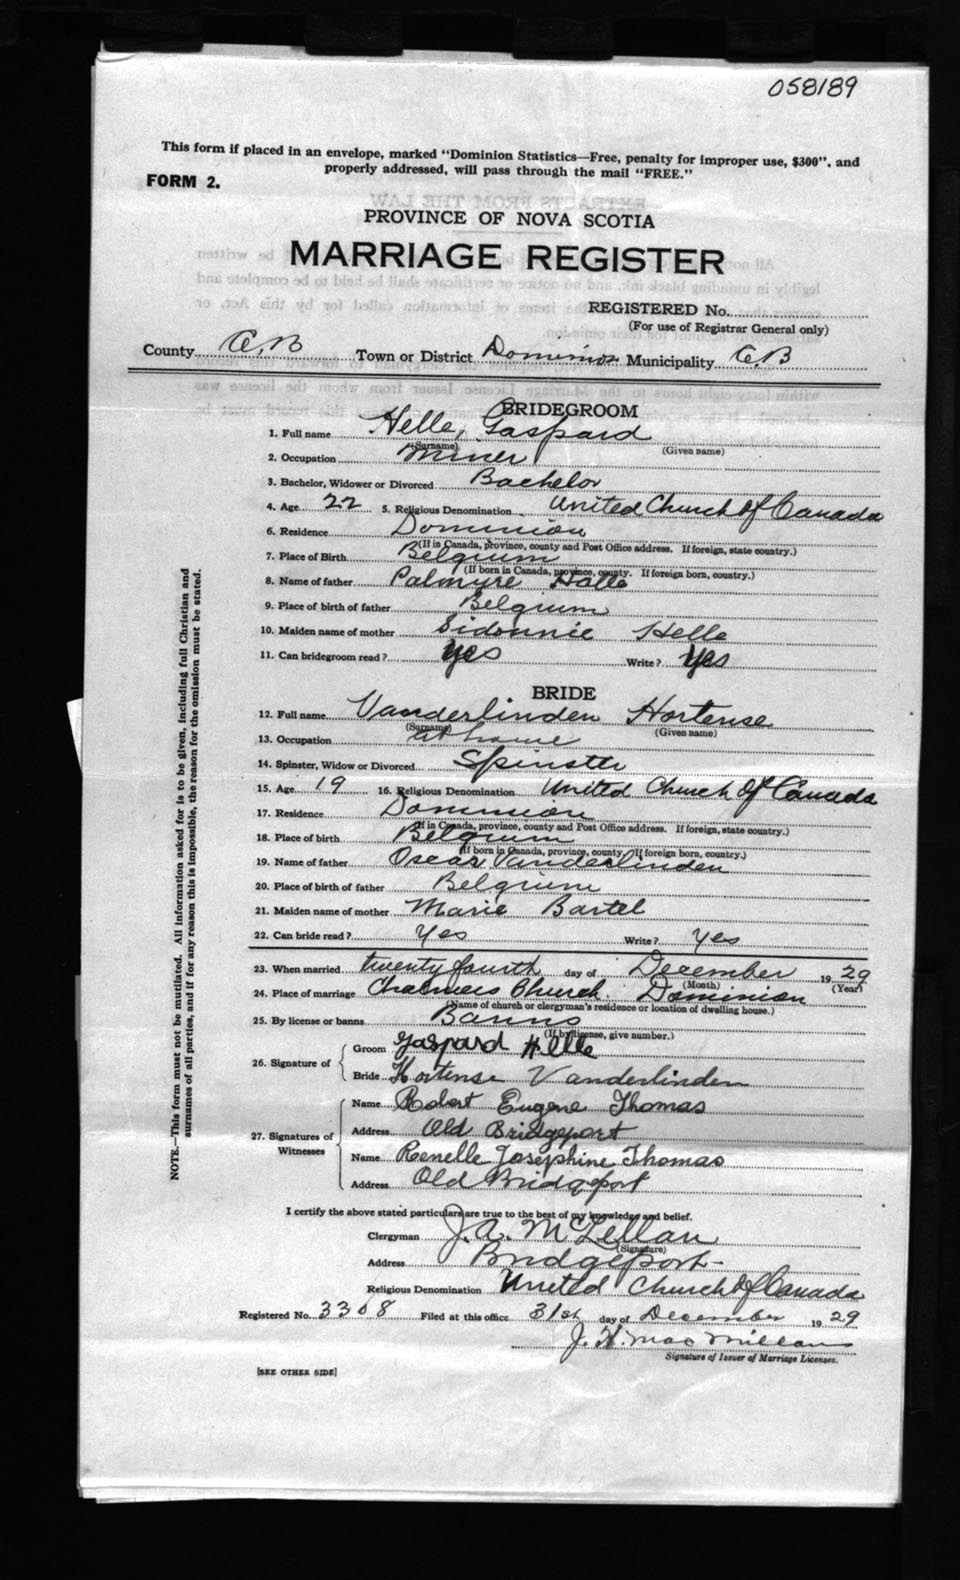 058189
This form if placed in an envelope, marked "Dominion Statistics—Free, penalty for improper use, $300", and
properly addressed, will pass through the mail "FREE."
FORM 2.
PROVINCE OF NOVA SCOTIA
MARRIAGE REGISTER
REGISTERED No.
(For use of Registrar General only)
County C.B Town or District Dominion Municipality C.B
BRIDEGROOM
1. Full name Helle, Gaspard
(Surname) (Given name)
2. Occupation Miner
3. Bachelor, Widower or Divorced Bachelor
4. Age 22 5. Religious Denomination United Church of Canada
6. Residence Dominion
(If in Canada, province, county and Post Office address. If foreign, state country.)
7. Place of Birth Belgium
(If born in Canada, province, county. If foreign born, country.)
8. Name of father Palmyre Halle
9. Place of birth of father Belgium
10. Maiden name of mother Sidonnie Helle
11. Can bridegroom read? Yes Write? Yes
BRIDE
12. Full name Vanderlinden Hortense
(Surname) (Given name)
13. Occupation at home
14. Spinster, Widow or Divorced Spinster
15. Age 19 16. Religious Denomination United Church of Canada
17. Residence Dominion
(If in Canada, province, county and Post Office address. If foreign, state country.)
18. Place of birth Belgium
(If born in Canada, province, county. If foreign born, country.)
19. Name of father Oscar Vanderlinden
20. Place of birth of father Belgium
21. Maiden name of mother Marie Bartel
22. Can bride read? Yes Write? Yes
23. When married twenty fourth day of December 1929
(Month) (Year)
24. Place of marriage Chalmers Church Dominion
(Name of church or clergyman's residence or location of dwelling house.)
25. By license or banns Banns
(If by license, give number.)
26. Signature of
Groom Gaspard Helle
Bride Hortense Vanderlinden
27. Signatures of Witnesses
Name Robert Eugene Thomas
Address Old Bridgeport
Name Renelle Josephine Thomas
Address Old Bridgeport
I certify the above stated particulars are true to the best of my knowledge and belief.
Clergyman J. A. McLellan
(Signature)
Address Bridgeport
Religious Denomination United Church of Canada
Registered No. 3308 Filed at this office 31st day of December 1929
J. H. MacMillan
Signature of Issuer of Marriage Licenses.
[SEE OTHER SIDE]
NOTE.—This form must not be mutilated. All information asked for is to be given, including full Christian and
surnames of all parties, and if for any reason this is impossible, the reason for the omission must be stated.